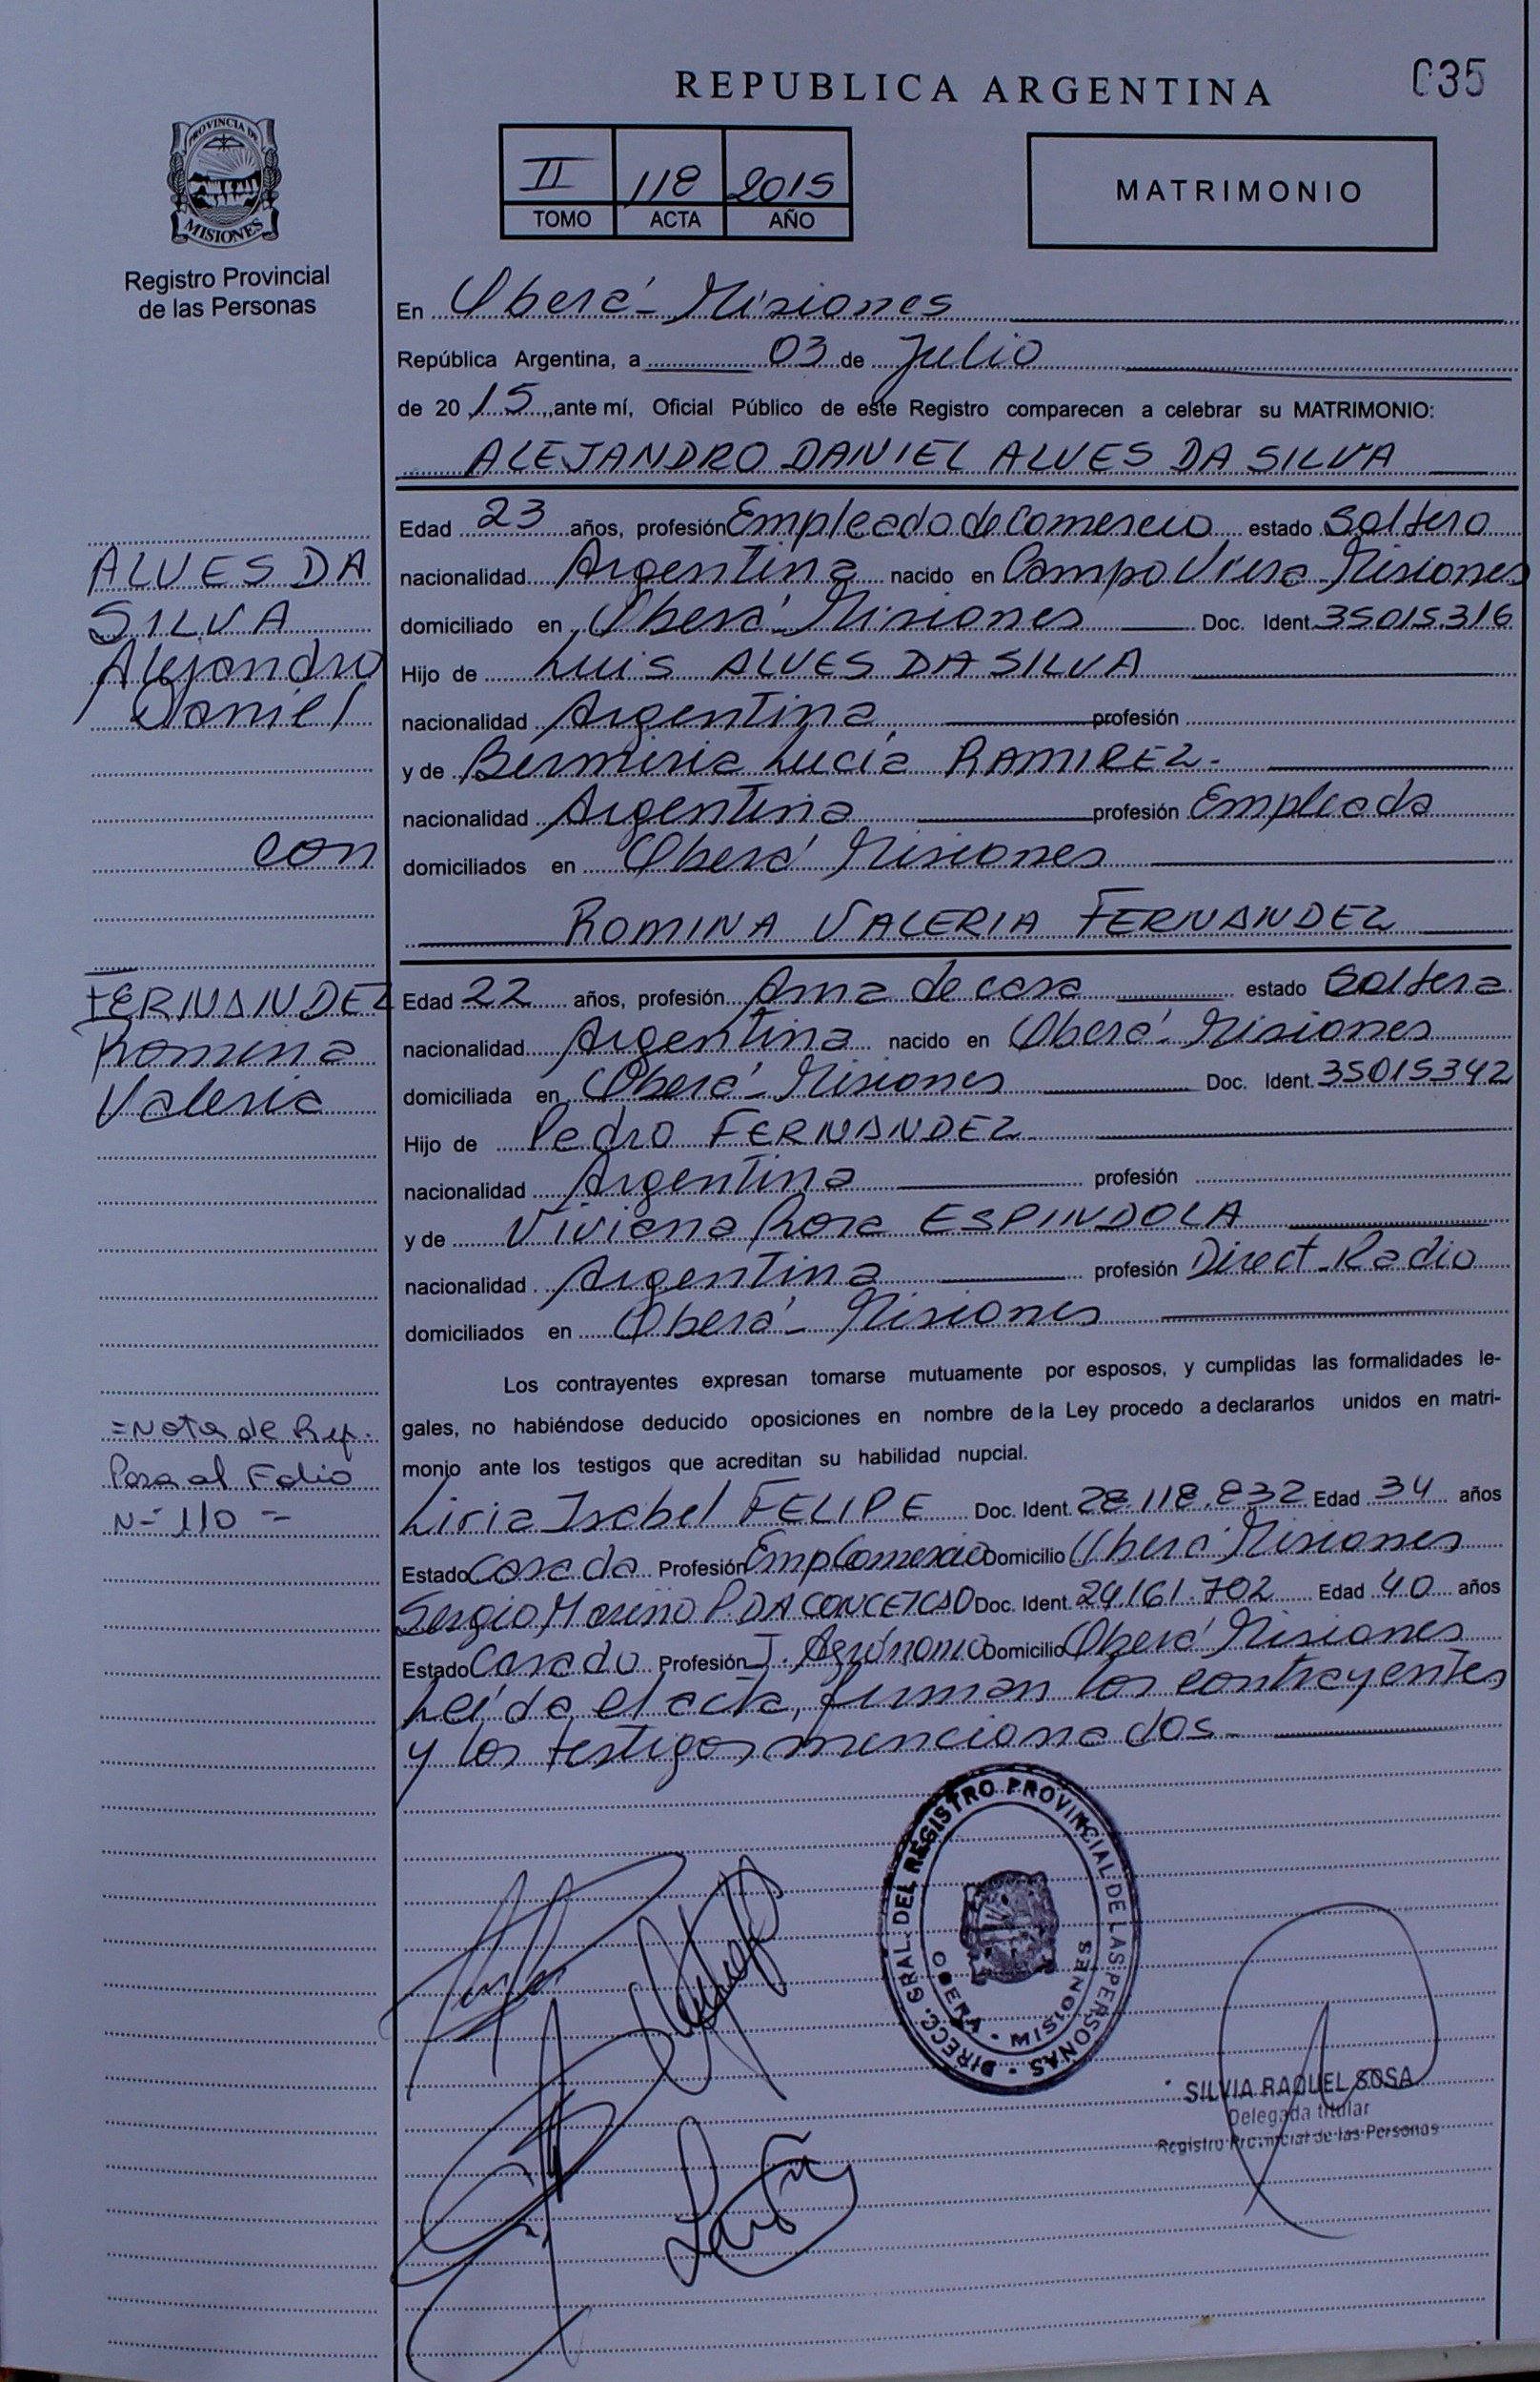 REPUBLICA ARGENTINA
035
PROVINCIA DE
MISIONES
Registro Provincial
de las Personas
II 118 2015
TOMO ACTA AÑO
MATRIMONIO
En Oberá - Misiones
República Argentina, a 03 de Julio
de 2015, ante mí, Oficial Público de este Registro comparecen a celebrar su MATRIMONIO:
ALEJANDRO DANIEL ALVES DA SILVA
Edad 23 años, profesión Empleado de Comercio estado Soltero
nacionalidad Argentina nacido en Campo Viera Misiones
domiciliado en Oberá - Misiones Doc. Ident. 35015.316
Hijo de Luis ALVES DA SILVA
nacionalidad Argentina profesión
y de Bermiria Lucía RAMIREZ.
nacionalidad Argentina profesión Empleada
domiciliados en Oberá Misiones
ALVES DA
SILVA
Alejandro
Daniel
con
ROMINA VALERIA FERNANDEZ
Edad 22 años, profesión Ama de casa estado Soltera
nacionalidad Argentina nacido en Oberá - Misiones
domiciliada en Oberá - Misiones Doc. Ident. 35015342
Hijo de Pedro FERNANDEZ
nacionalidad Argentina profesión
y de Viviana Rosa ESPINDOLA
nacionalidad Argentina profesión Direct. Radio
domiciliados en Oberá - Misiones
FERNANDEZ
Romina
Valeria
Los contrayentes expresan tomarse mutuamente por esposos, y cumplidas las formalidades le-
gales, no habiéndose deducido oposiciones en nombre de la Ley procedo a declararlos unidos en matri-
monio ante los testigos que acreditan su habilidad nupcial.
=Nota de Ref.
Pasa al Folio
N- 110 =
Liria Isabel FELIPE Doc. Ident. 28.118.832 Edad 34 años
Estado Casada Profesión Emp Comercio Domicilio Oberá Misiones
Sergio Marino P. DA Doc. Ident. 24161.702 Edad 40 años
Estado Casado Profesión I. Agrónomo Domicilio Oberá Misiones
Leída el acta, firman los contrayentes
y los testigos mencionados.
DIRECC. GRAL. DEL REGISTRO PROVINCIAL DE LAS PERSONAS
OBERA - MISIONES
SILVIA RAQUEL SOSA
Delegada titular
Registro Provincial de las Personas